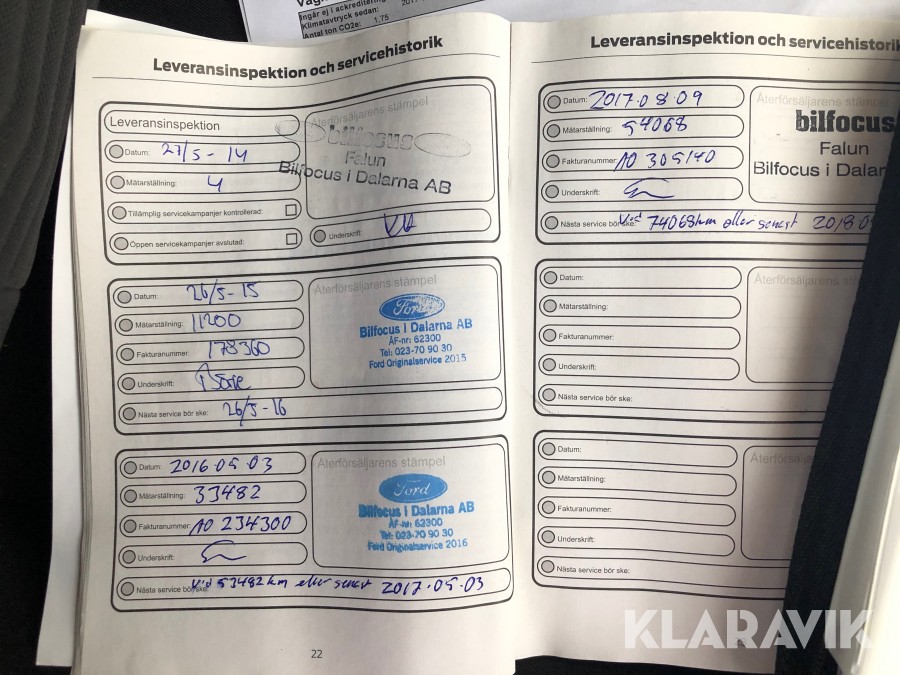 Ingår ej i ackreditering
Klimatavtryck sedan:
Antal ton CO2e: 1,75
Leveransinspektion och servicehistorik
Leveransinspektion
Datum: 27/5-14
Mätarställning: 4
Tillämplig servicekampanjer kontrollerad:
Öppen servicekampanjer avslutad:
Återförsäljarens stämpel
bilfocus
Falun
Bilfocus i Dalarna AB
Underskrift:
Datum: 26/5-15
Mätarställning: 11200
Fakturanummer: 178360
Underskrift:
Nästa service bör ske: 26/5-16
Återförsäljarens stämpel
Ford
Bilfocus i Dalarna AB
ÅF-nr: 62300
Tel: 023-70 90 30
Ford Originalservice 2015
Datum: 2016.05.03
Mätarställning: 33482
Fakturanummer: 10 234300
Underskrift:
Nästa service bör ske: Vid 53482 km eller senast 2017.05.03
Återförsäljarens stämpel
Ford
Bilfocus i Dalarna AB
ÅF-nr: 62300
Tel: 023-70 90 30
Ford Originalservice 2016
22
Leveransinspektion och servicehistorik
Datum: 2017.08.09
Mätarställning: 54068
Fakturanummer: 10 305140
Underskrift:
Nästa service bör ske: Vid 74068 km eller senast 2018.0
Återförsäljarens stämpel
bilfocus
Falun
Bilfocus i Dalar
Datum:
Mätarställning:
Fakturanummer:
Underskrift:
Nästa service bör ske:
Återförsälja
Datum:
Mätarställning:
Fakturanummer:
Underskrift:
Nästa service bör ske:
Återförsä
KLARAVIK